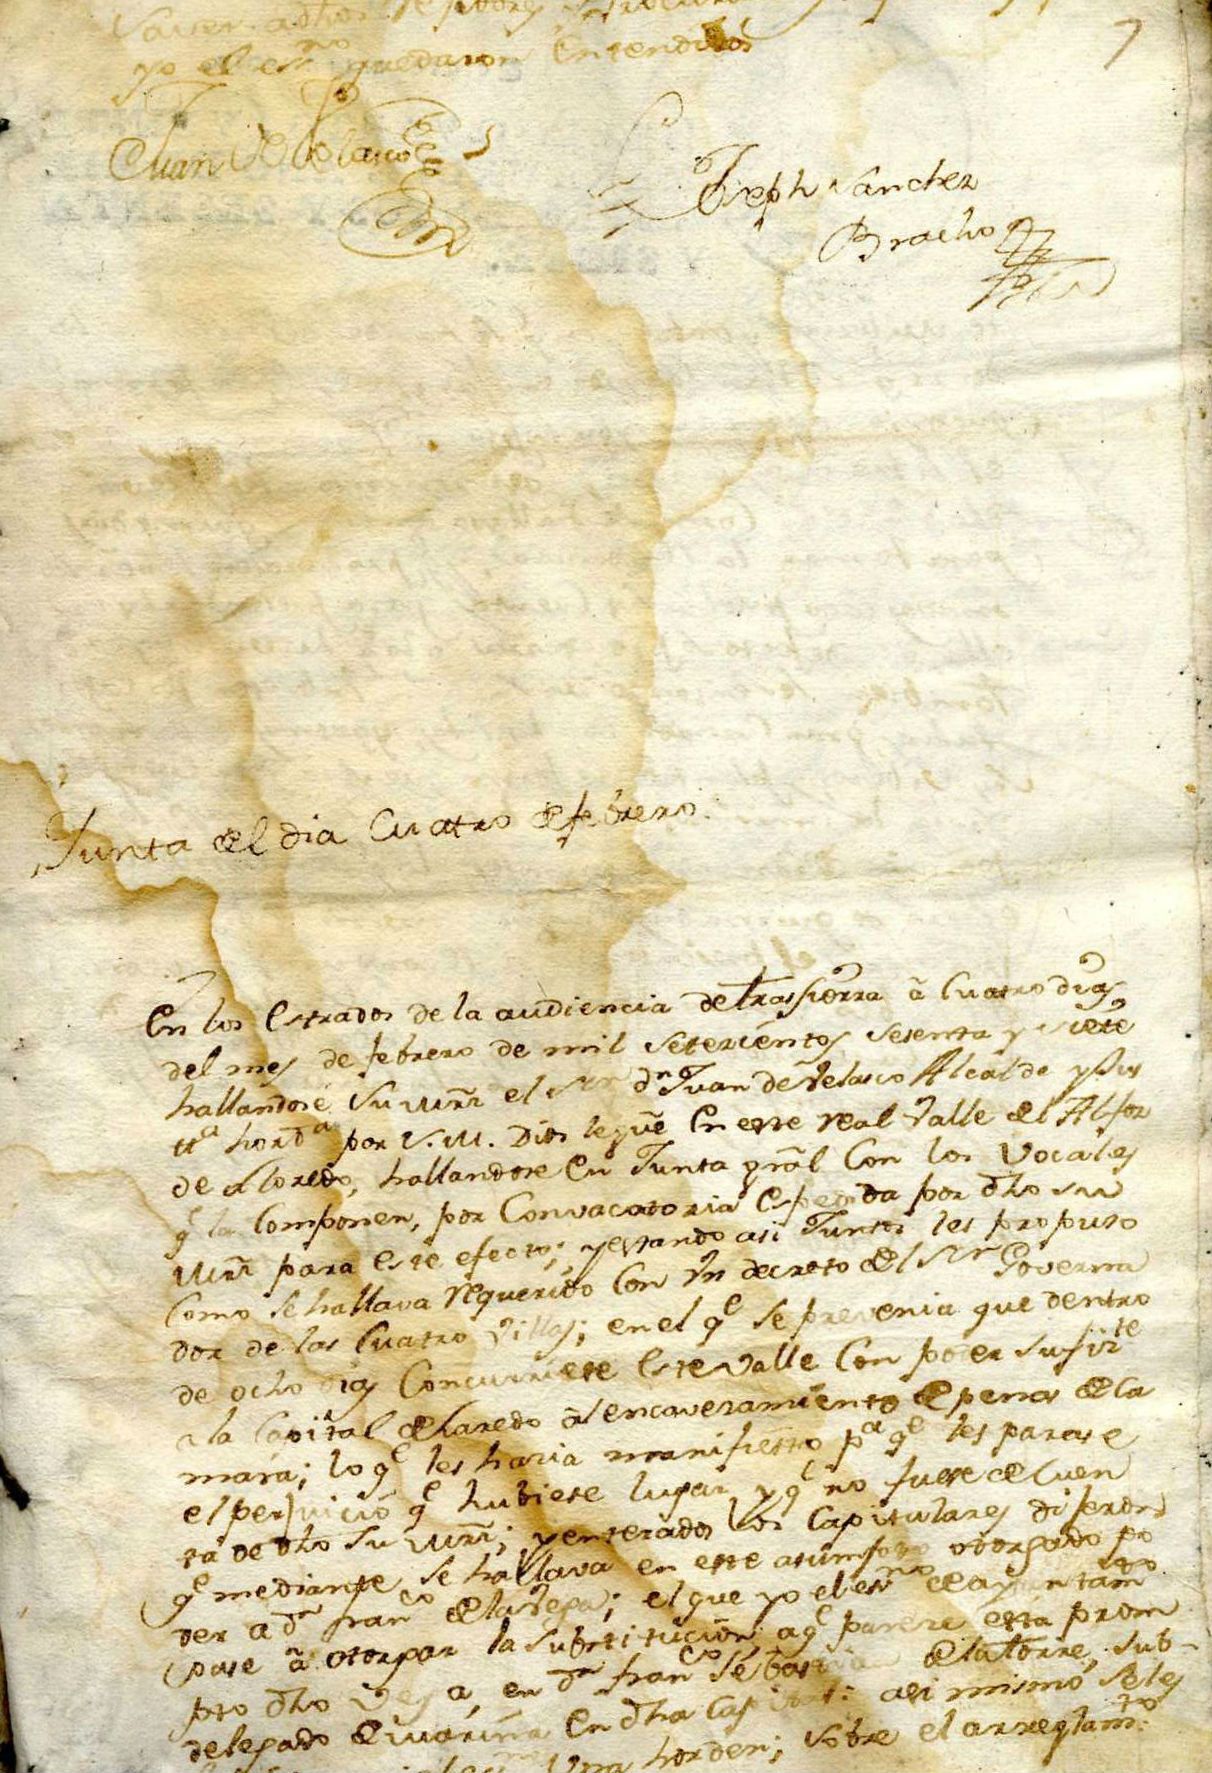 7
yo el essno quedaron Entendidos
Juan de Velasco
Joseph Sanchez
Bracho
Junta del dia Cuatro de febrero.
En los Estrados de la audiencia de trassierra â Cuatro dias
del mes de febrero de mil setecientos setenta y siete
hallandose Su mrd el Sr Dn Juan de Velasco Alcalde y Jus
tta hordª por S.M. Dios le gue En este real Valle del Alfor
de Lloredo, hallandose En Junta gral Con los Vocales
qe la Componen, por Convocatoria Espedida por dho su
mrd para este efecto; y estando asi Juntos les propuso
Como se hallava requerido Con Vn decreto del Sr Governa
dor de las Cuatro Villas; en el qe se prevenia que dentro
de ocho dias Concurriese Este Valle Con poder sufizte
a la Capital de Laredo âl encaveramiento de penas de la
mara; lo qe les havia manifiesto pª qe les parase
el perjuicio qe hubiese lugar y qe no fuese de Cuen
ta de dho su mrd; y enterados los Capitulares digeron
qe mediante se hallava en este asumpto otorgado po
der a Dn Franco de la Vega; el que yo el esno de ayuntamto
pase â otorgar la Substitucion, aqe parece esta prom
pto dho Vega, en Dn Franco Sebastian de la torre, sub-
delegado de marina En dha Capital: asi mismo se les
Una horden; sobre el arreglamto